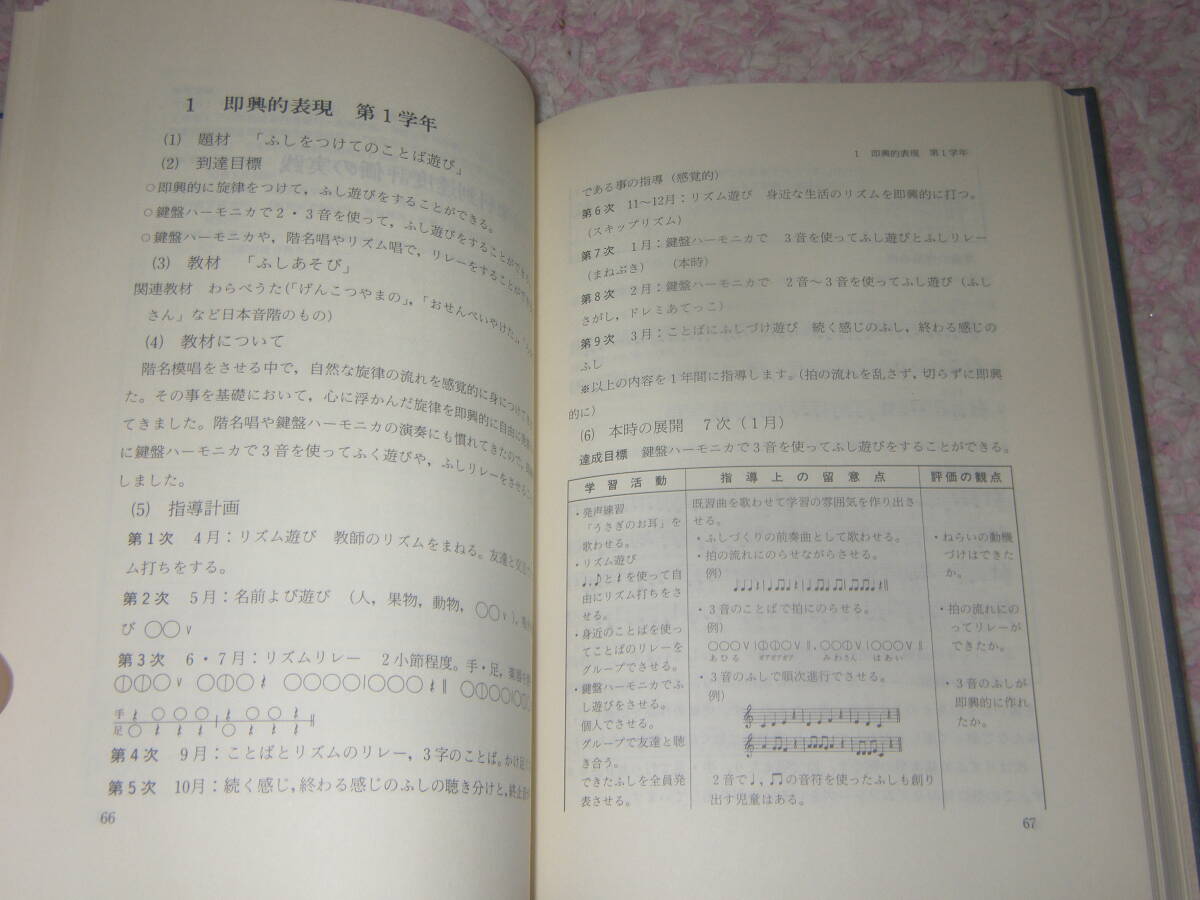 1 即興的表現 第1学年
(1) 題材 「ふしをつけてのことば遊び」
(2) 到達目標
○即興的に旋律をつけて，ふし遊びをすることができる。
○鍵盤ハーモニカで2・3音を使って，ふし遊びをすることができ
○鍵盤ハーモニカや，階名唱やリズム唱で，リレーをすることが
(3) 教材 「ふしあそび」
関連教材 わらべうた(「げんこつやまの」，「おせんべいやけた」，
さん」など日本音階のもの)
(4) 教材について
階名模唱をさせる中で，自然な旋律の流れを感覚的に身につけて
た。その事を基礎において，心に浮かんだ旋律を即興的に自由に
てきました。階名唱や鍵盤ハーモニカの演奏にも慣れてきたので，
に鍵盤ハーモニカで3音を使ってふく遊びや，ふしリレーをさせる
しました。
(5) 指導計画
第1次 4月：リズム遊び 教師のリズムをまねる。友達と
ム打ちをする。
第2次 5月：名前よび遊び (人，果物，動物，○○∨)，
び ○○∨
第3次 6・7月：リズムリレー 2小節程度。手・足，
手
足
第4次 9月：ことばとリズムのリレー，3字のことば。かけ足
第5次 10月：続く感じ，終わる感じのふしの聴き分けと，
66
1 即興的表現 第1学年
である事の指導 (感覚的)
第6次 11〜12月：リズム遊び 身近な生活のリズムを即興的に打つ。
(スキップリズム)
第7次 1月：鍵盤ハーモニカで 3音を使ってふし遊びとふしリレー
(まねぶき) (本時)
第8次 2月：鍵盤ハーモニカで 2音〜3音を使ってふし遊び (ふし
さがし，ドレミあてっこ)
第9次 3月：ことばにふしづけ遊び 続く感じのふし，終わる感じの
ふし
※以上の内容を1年間に指導します。(拍の流れを乱さず，切らずに即興
的に)
(6) 本時の展開 7次 (1月)
達成目標 鍵盤ハーモニカで3音を使ってふし遊びをすることができる。
学習活動
・発声練習
「うさぎのお耳」を
歌わせる。
・リズム遊び
♩，♪と𝄽を使って自
由にリズム打ちをさ
せる。
・身近のことばを使っ
てことばのリレーを
グループでさせる。
・鍵盤ハーモニカでふ
し遊びをさせる。
個人でさせる。
グループで友達と聴
き合う。
できたふしを全員発
表させる。
指導上の留意点
既習曲を歌わせて学習の雰囲気を作り出さ
せる。
・ふしづくりの前奏曲として歌わせる。
・拍の流れにのらせながらさせる。
例)
・3音のことばで拍にのらせる。
例)
○○○∨ ○○∨ ○○○∨ ○○○∨
あひる みわさん はあい
・3音のふしで順次進行でさせる。
例)
2音で♩，♫の音符を使ったふしも創り
出す児童はある。
評価の観点
・ねらいの動機
づけはできた
か。
・拍の流れにの
ってリレーが
できたか。
・3音のふしが
即興的に作れ
たか。
67